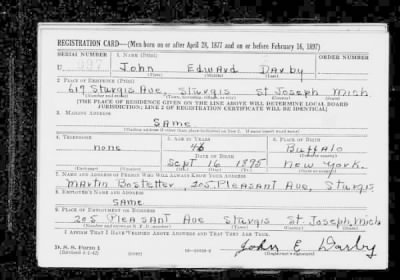 REGISTRATION CARD—(Men born on or after April 28, 1877 and on or before February 16, 1897)
SERIAL NUMBER 1. NAME (Print) ORDER NUMBER
U John Edward Darby
(First) (Middle) (Last)
2. PLACE OF RESIDENCE (Print)
617 Sturgis Ave, Sturgis St Joseph Mich
(THE PLACE OF RESIDENCE GIVEN ON THE LINE ABOVE WILL DETERMINE LOCAL BOARD
JURISDICTION; LINE 2 OF REGISTRATION CERTIFICATE WILL BE IDENTICAL)
3. MAILING ADDRESS
Same
[Mailing address if other than place indicated on line 2. If same insert word same]
4. TELEPHONE 5. AGE IN YEARS 6. PLACE OF BIRTH
none 46 Buffalo
DATE OF BIRTH
Sept 16 1895 New York.
7. NAME AND ADDRESS OF PERSON WHO WILL ALWAYS KNOW YOUR ADDRESS
Martin Bostetter 205 Pleasant Ave, Sturgis
8. EMPLOYER'S NAME AND ADDRESS
Same
9. PLACE OF EMPLOYMENT OR BUSINESS
205 Pleasant Ave Sturgis St. Joseph, Mich
I AFFIRM THAT I HAVE VERIFIED ABOVE ANSWERS AND THAT THEY ARE TRUE.
D. S. S. Form 1
(Revised 4-1-42) (over) John E Darby
(Registrant's signature)